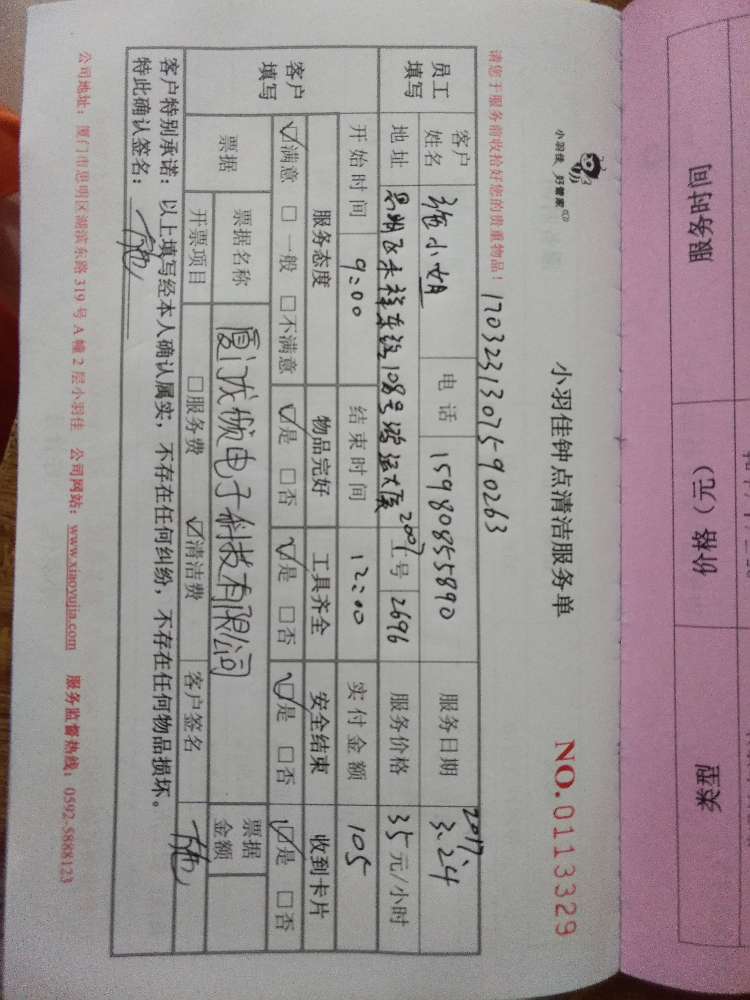 小羽佳 好管家
小羽佳钟点清洁服务单
NO.0113329
17032313075590263
请您于服务前收拾好您的贵重物品！
员工填写 客户姓名 施小姐 电话 15980855890 服务日期 2017. 3.24
地址 思明区禾祥东路108号 大厦 2007 工号 2696 服务价格 35元/小时
客户填写 开始时间 9:00 结束时间 12:00 实付金额 105
服务态度 物品完好 工具齐全 安全结束 收到卡片
☑满意 □一般 □不满意 ☑是 □否 ☑是 □否 ☑是 □否 ☑是 □否
票据 票据名称 电子科技有限公司 票据金额
开票项目 □服务费 ☑清洁费 客户签名 施
客户特别承诺：以上填写经本人确认属实，不存在任何纠纷，不存在任何物品损坏。
特此确认签名： 施
公司地址：厦门市思明区湖滨东路319号A幢2层小羽佳 公司网站：www.xiaoyujia.com 服务监督热线：0592-5888123
服务时间
价格（元）
类型